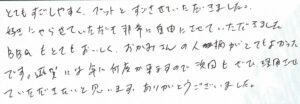 とてもすごしやすく、ペットとすごさせていただきました。
好きにやらせていただき非常に自由にさせていただきました。
BBQもとてもおいしく、おかみさんの人柄がとてもよかった
です。滋賀には年に何度か来ますので次回もぜひ、利用させ
ていただきたいと思います。ありがとうございました。